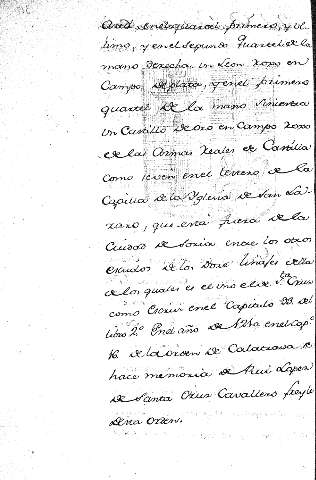 en el quartel primero, y ul-
timo, y en el segundo Quartel de la
mano derecha un Leon roxo en
Campo de plata, y en el primero
quartel de la mano siniestra
un Castillo de oro en Campo roxo
de las Armas reales de Castilla
como se ven en el terreno de la
Capilla de la Iglesia de San La-
zaro, que está fuera de la
Ciudad de Soria entre los otros
escudos de los Doze linajes de
de los quales es el uno el de S.ta Cruz
como escrivi en el Capitulo 23. del
libro 2.º En el año de en el Cap.º
16. de la orden de Calatrava se
hace memoria de Rui Lopez
de Santa Cruz Cavallero freyle
de esta orden.